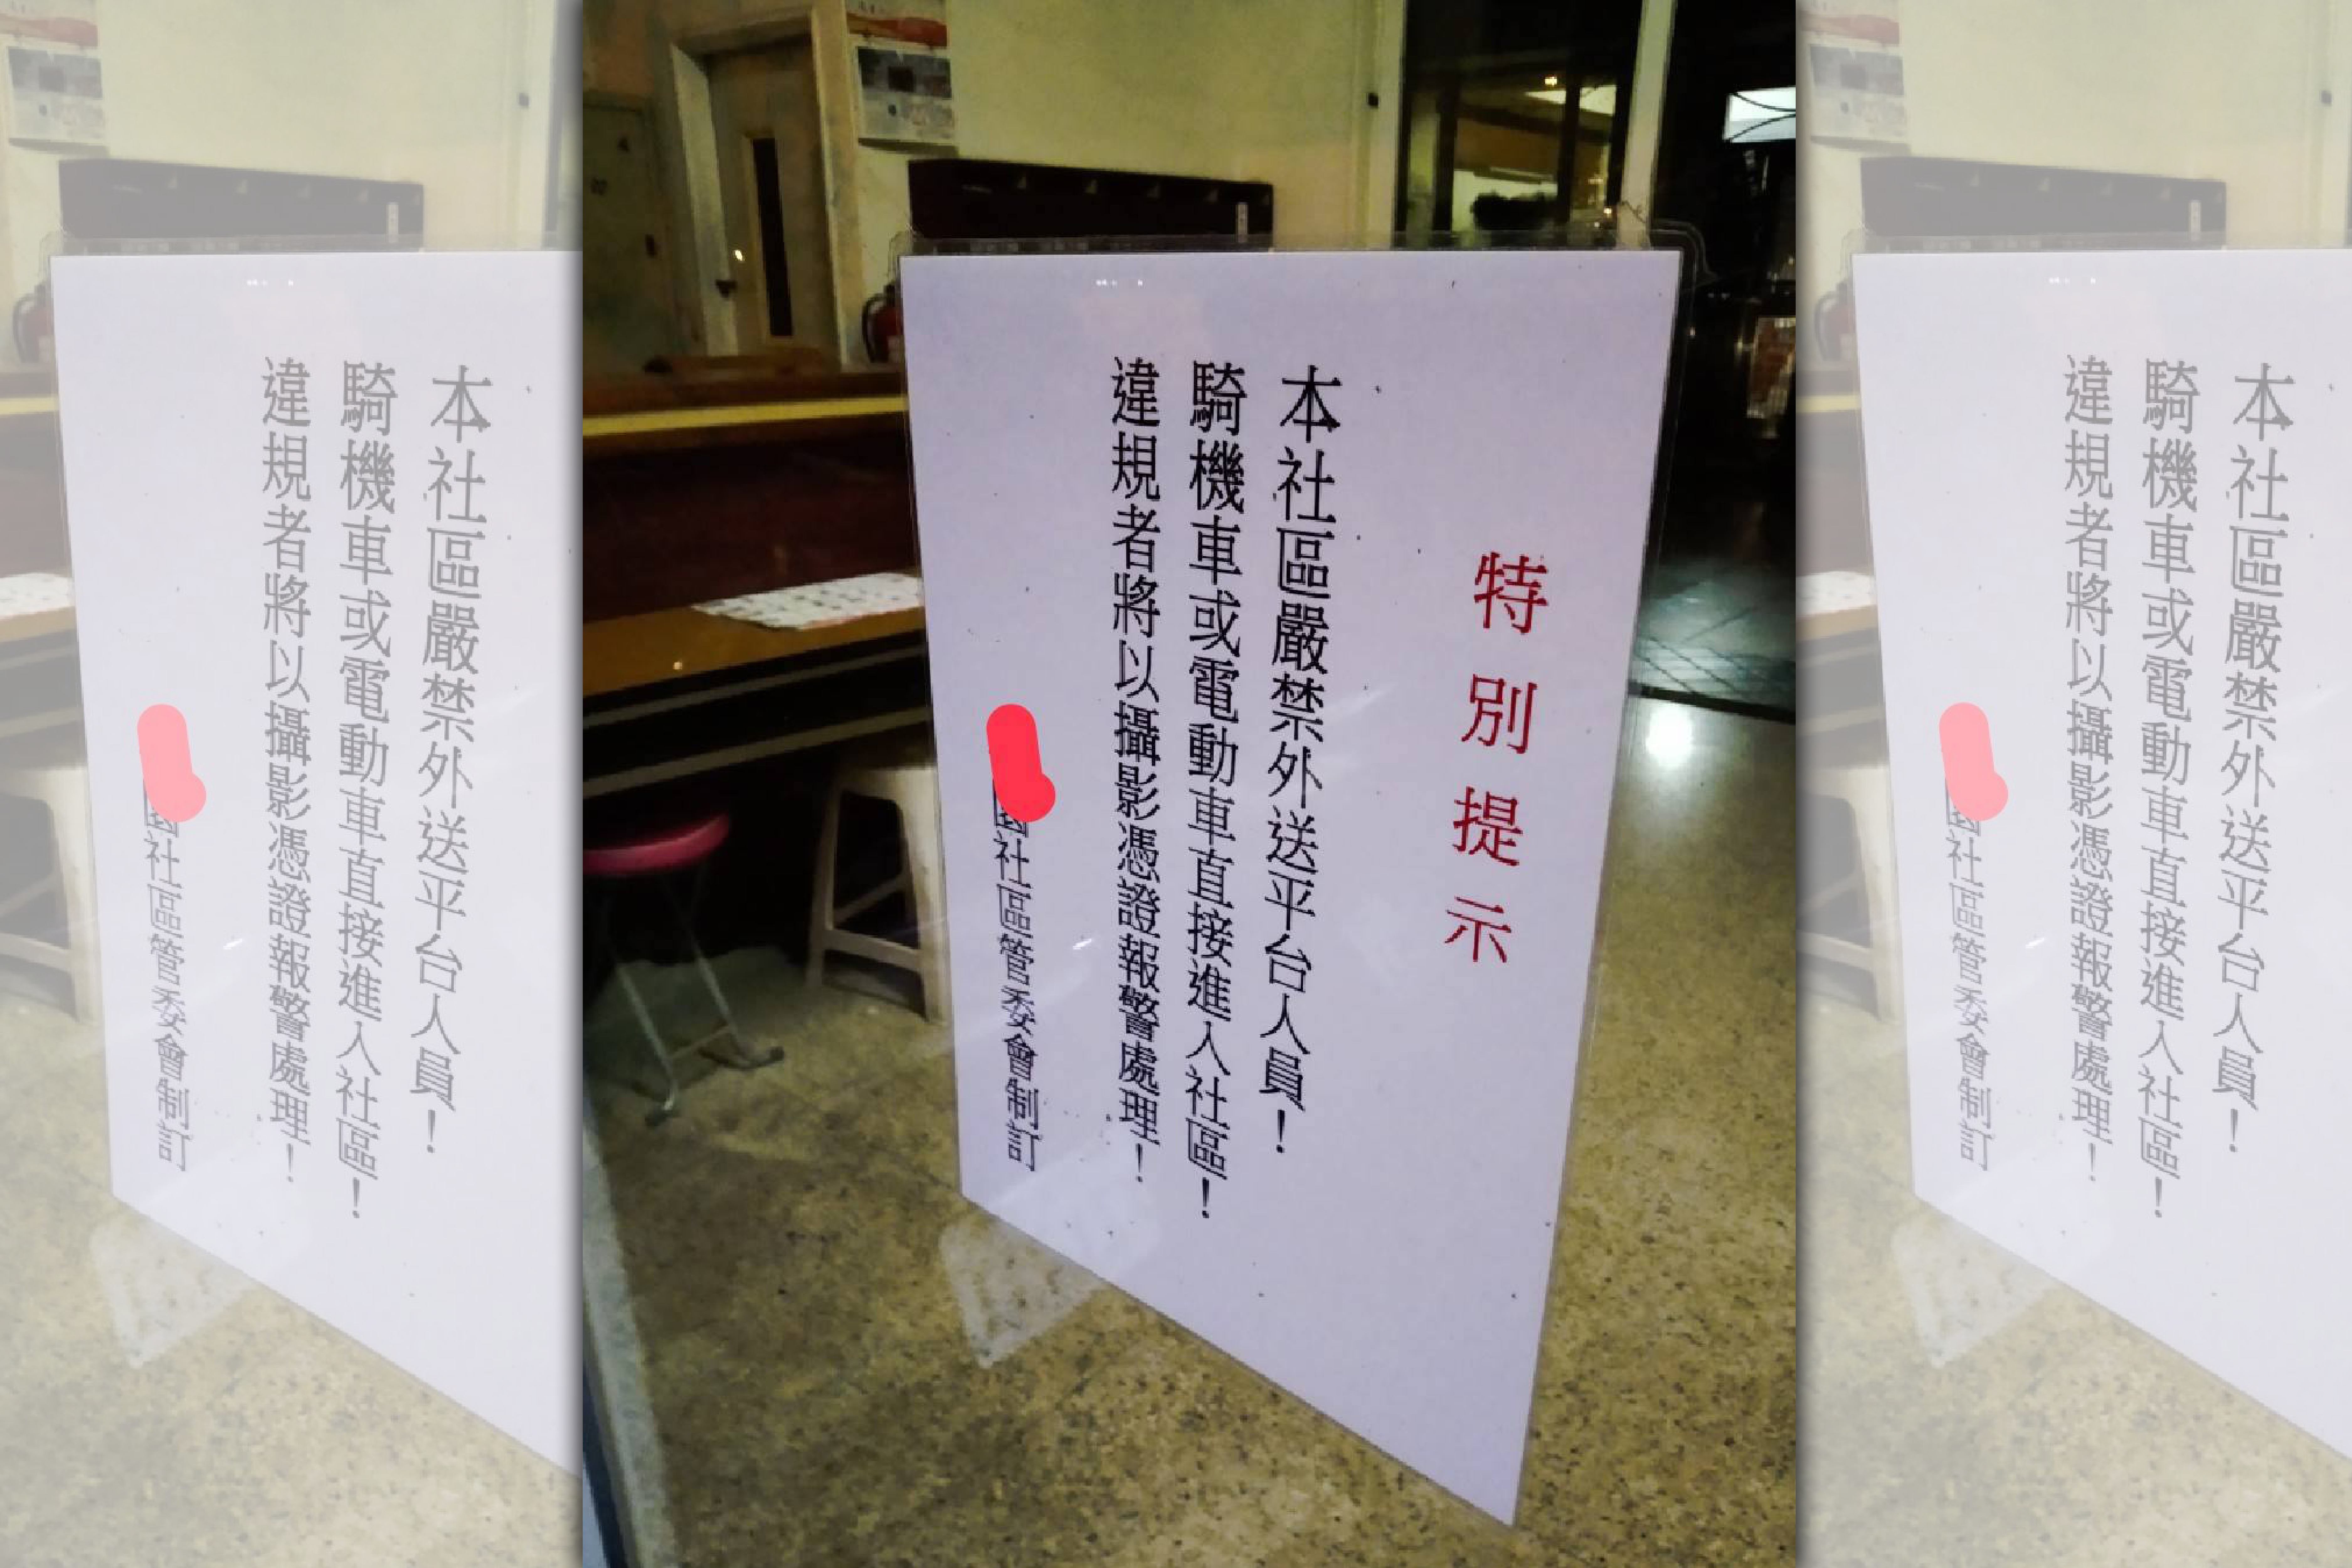 特別提示
本社區嚴禁外送平台人員！
騎機車或電動車直接進入社區！
違規者將以攝影憑證報警處理！
園社區管委會制訂